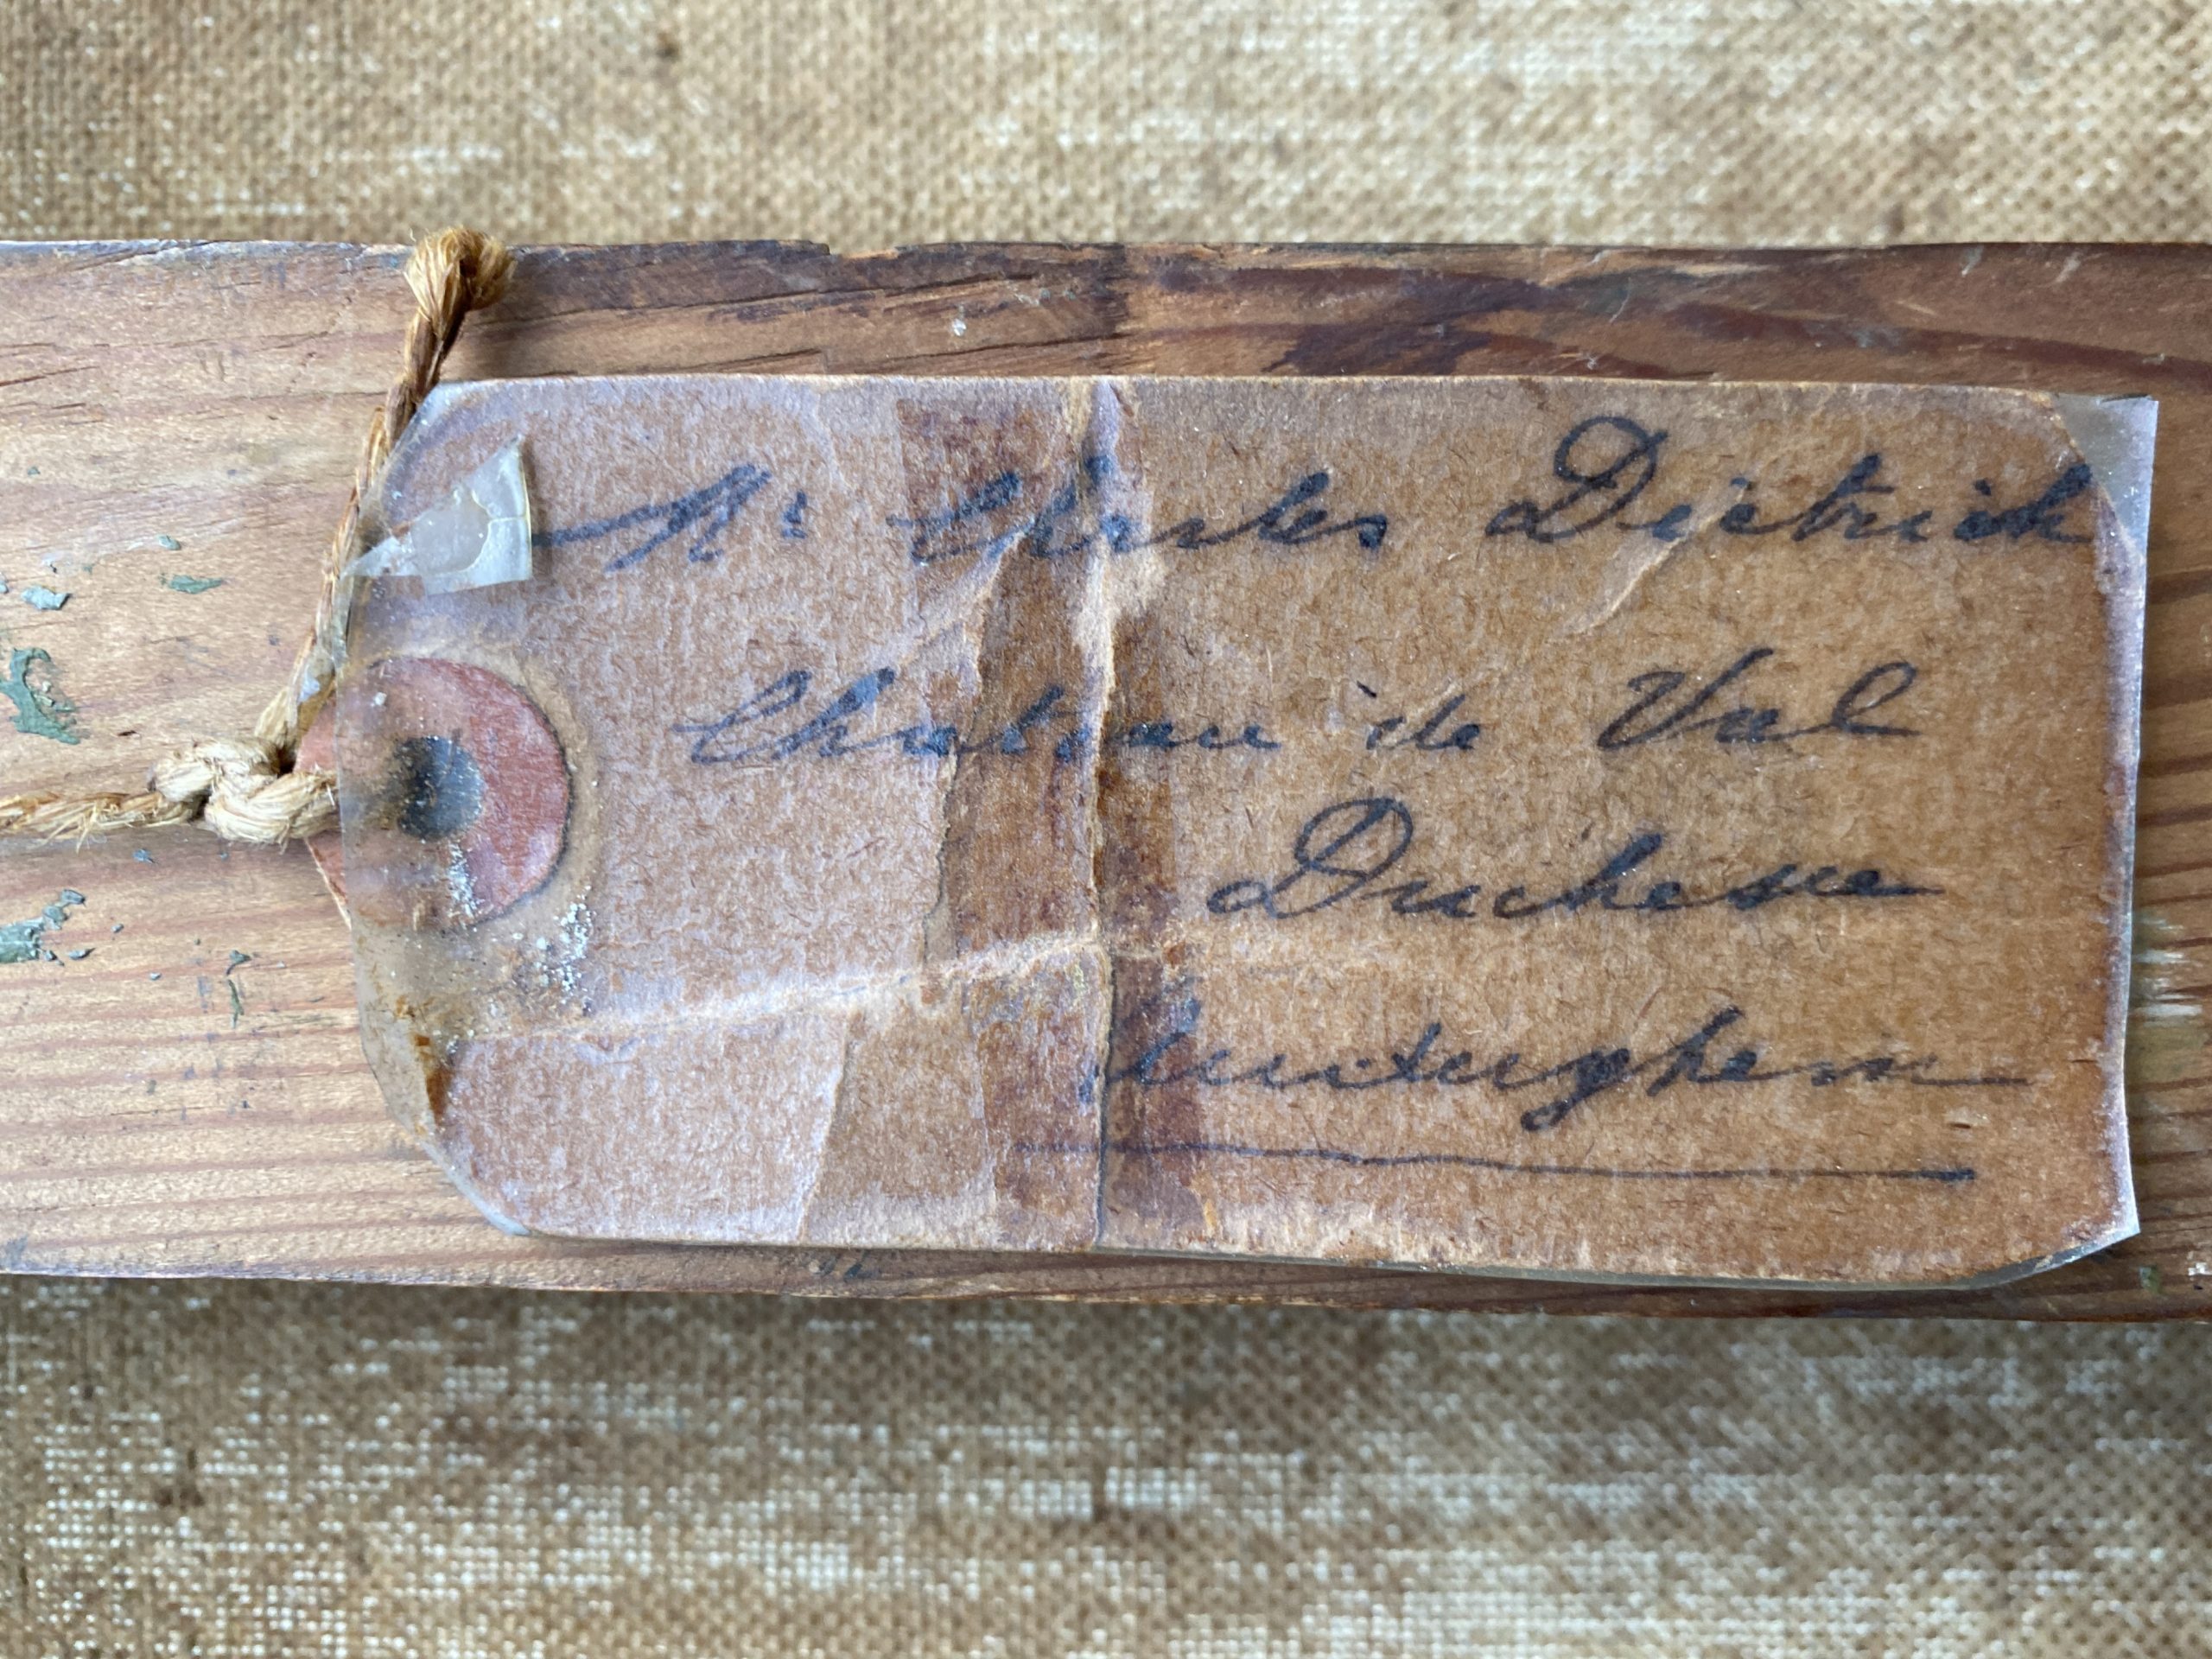 Mr Charles Dietrich
Chateau de Val
Duchesse
Auderghem